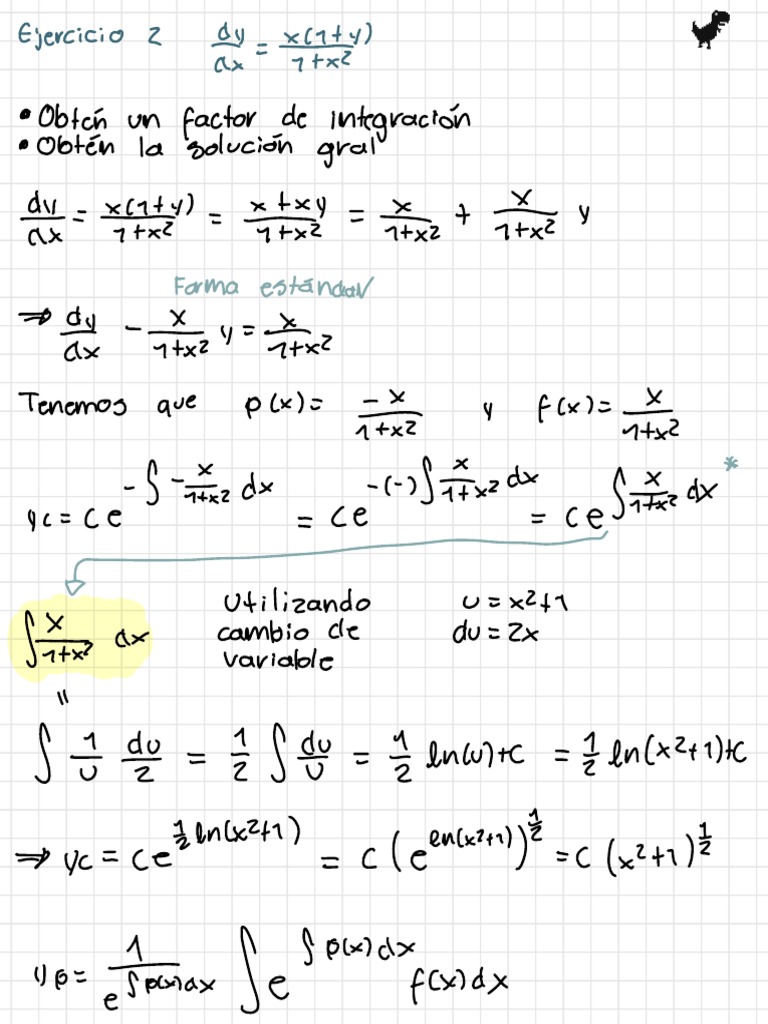 Ejercicio 2 dy/dx = x(1+y)/1+x²
• Obtén un factor de integración
• Obtén la solución gral
dy/dx = x(1+y)/1+x² = x+xy/1+x² = x/1+x² + x/1+x² y
Forma estándar
⇒ dy/dx - x/1+x² y = x/1+x²
Tenemos que p(x) = -x/1+x² y f(x) = x/1+x²
yc = ce^(-∫ -x/1+x² dx) = ce^(-(-)∫ x/1+x² dx) = ce^(∫ x/1+x² dx) *
∫ x/1+x² dx Utilizando cambio de variable u = x²+1 du = 2x
"
∫ 1/u du/2 = 1/2 ∫ du/u = 1/2 ln(u)+c = 1/2 ln(x²+1)+c
⇒ yc = ce^(1/2 ln(x²+1)) = c(e^(ln(x²+1)))^(1/2) = c(x²+1)^(1/2)
yp = 1/e^(∫p(x)dx) ∫ e^(∫p(x)dx) f(x)dx